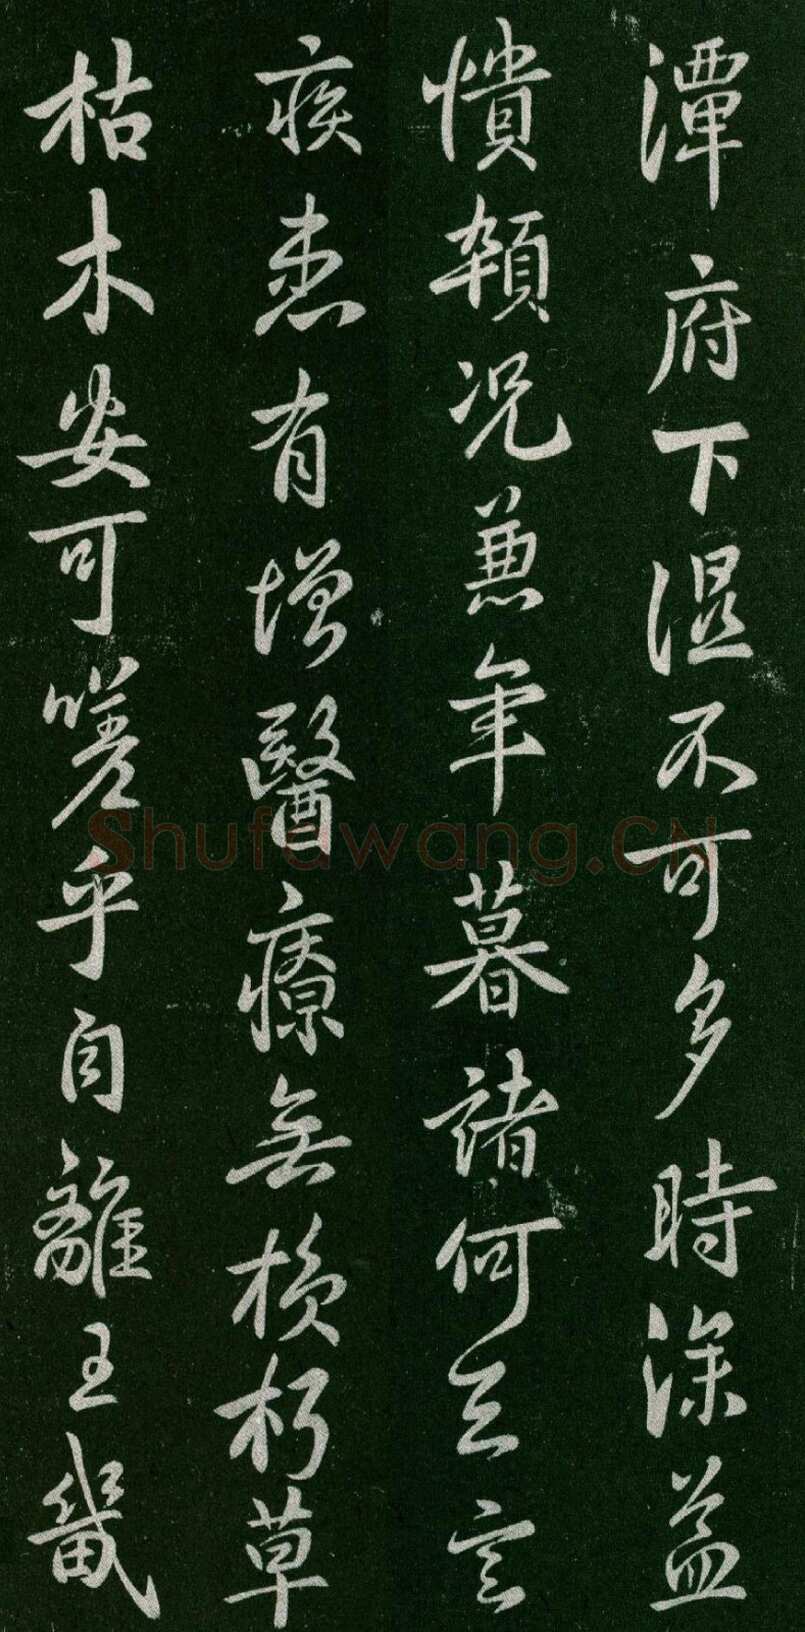 潭府下湿不可多時深益
憒頓况兼年暮諸何足言
疾患有增醫療無損朽草
枯木安可嗟乎自離王畿
Shufawang.CN